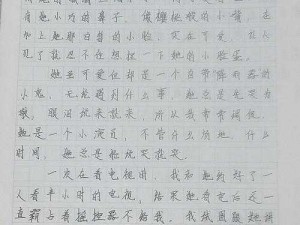 有她小巧的鼻子,像樱桃般的小嘴,再
加上她那白皙的小脸,实在可爱,让人
见了就忍不住想捏一下她的小脸蛋。
她虽可爱但却是一个自带降雨器的
小鬼,无论遇到什么事,她总是先哭为
敬,眼泪说来就来,所以我常常调侃,
她是一个小演员,不管什么场地,什么
时间,她总是能说哭就哭。
一次在看电视时,我和她约好了一
人看半小时的电视,结果她看完后还一
直霸占着摇控器不给我。我试图跟她讲